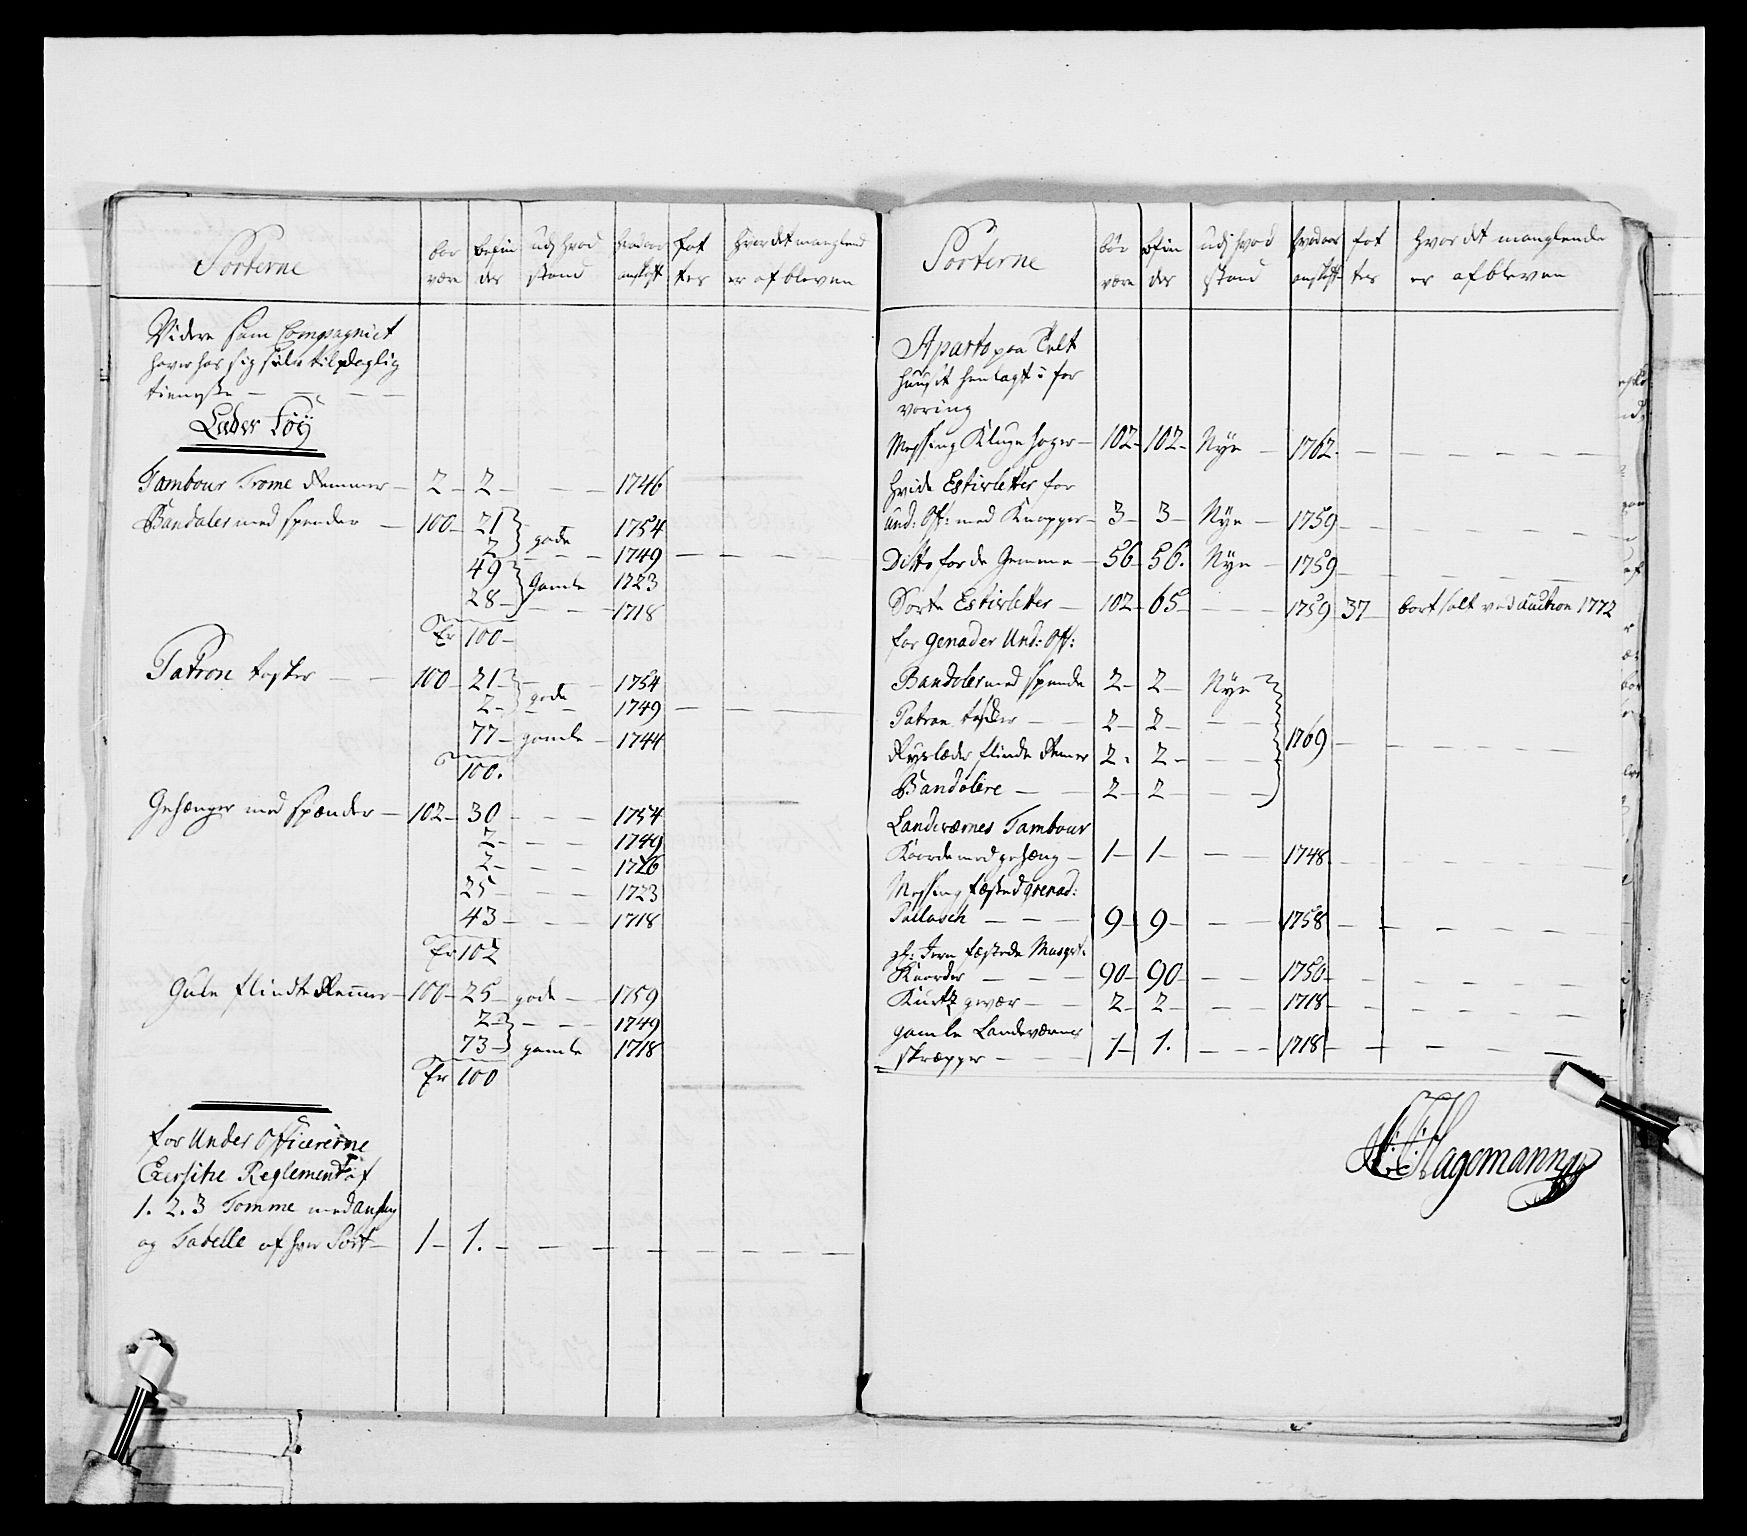 Sorterne bør være befin des udj hvad stand hvad aar anskft fat tes hvor det manglend er afbleven
Videre som Compagniet
haver hos sig selv til daglig
tieneste — — —
Læder Töÿ
Tambour Trome Remmer — 2 — 2 — — — 1746
Bandoler med spender — 100 — 21 — gode 1754
2 — — — 1749 — — — —
49 Gamle 1723
28 — — — 1718
Er 100 —
Patron tasker — — 100 — 21 — — 1754
2 — gode — 1749 — — — —
77 — gamle — 1744
100.
Gehænger med spænder — 102 — 30 — — — 1754
2 — — — 1749
2 — — — 1726
25 — — — 1723
43 — — — 1718
Er 102
Gule flindte Remmer — 100 — 25 — gode — 1759
2 — — — 1749
73 — gamle 1718
Er 100
for Under Officererne
Exersitie Reglement af
1. 2. 3 Tomme med
og Tabelle af hver Sort — 1 — 1. — — — — — — — —
Sorterne bør være befin des udj hvad stand hvad aar anskft fat tes hvor det manglende er afbleven
Aparto paa Telt
huuset henlagt i for
varing
Messing — 102 — 102 — Nÿe — 1762. — — — — —
hvide Estivletter for
und: Off: med Knapper — 3 — 3 — Nÿe — 1759 — — — — —
Ditto for de Gemene — 56 — 56. Nÿe — 1759 — — — — —
Sorte Estivletter — 102 — 65 — — — 1759 37 — bort solt ved Auction 1772
for genader Und: Off:
Bandoler med spende 2 — 2 — Nÿe
Patron tasker — — 2 — 2 — — —
Rÿslæder flinte Remer 2 . 2 — — — 1769 — — — — —
Bandolere — — 2 — 2 — — —
Landeværnes Tambour
Kaarde med gehæng — 1 — 1 — — — 1748 — — — — —
Messing fæsted grenad:
Pallasch — — — 9 — 9 — — — 1758 — — — — —
Jern fæstede Musqvt:
Kaarder — — — 90 — 90 — — — 1750 — — — — —
Kurtz gevær — — 2 — 2 — — — 1718 — — — — —
gamle Landeværns
skræpper — — — 1 — 1. — — — 1718 — — — — —
Hagemann